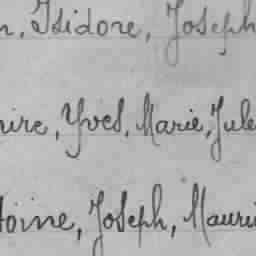 n, Isidore, Joseph
aire, Yves, Marie, Jule
toine, Joseph, Mauri